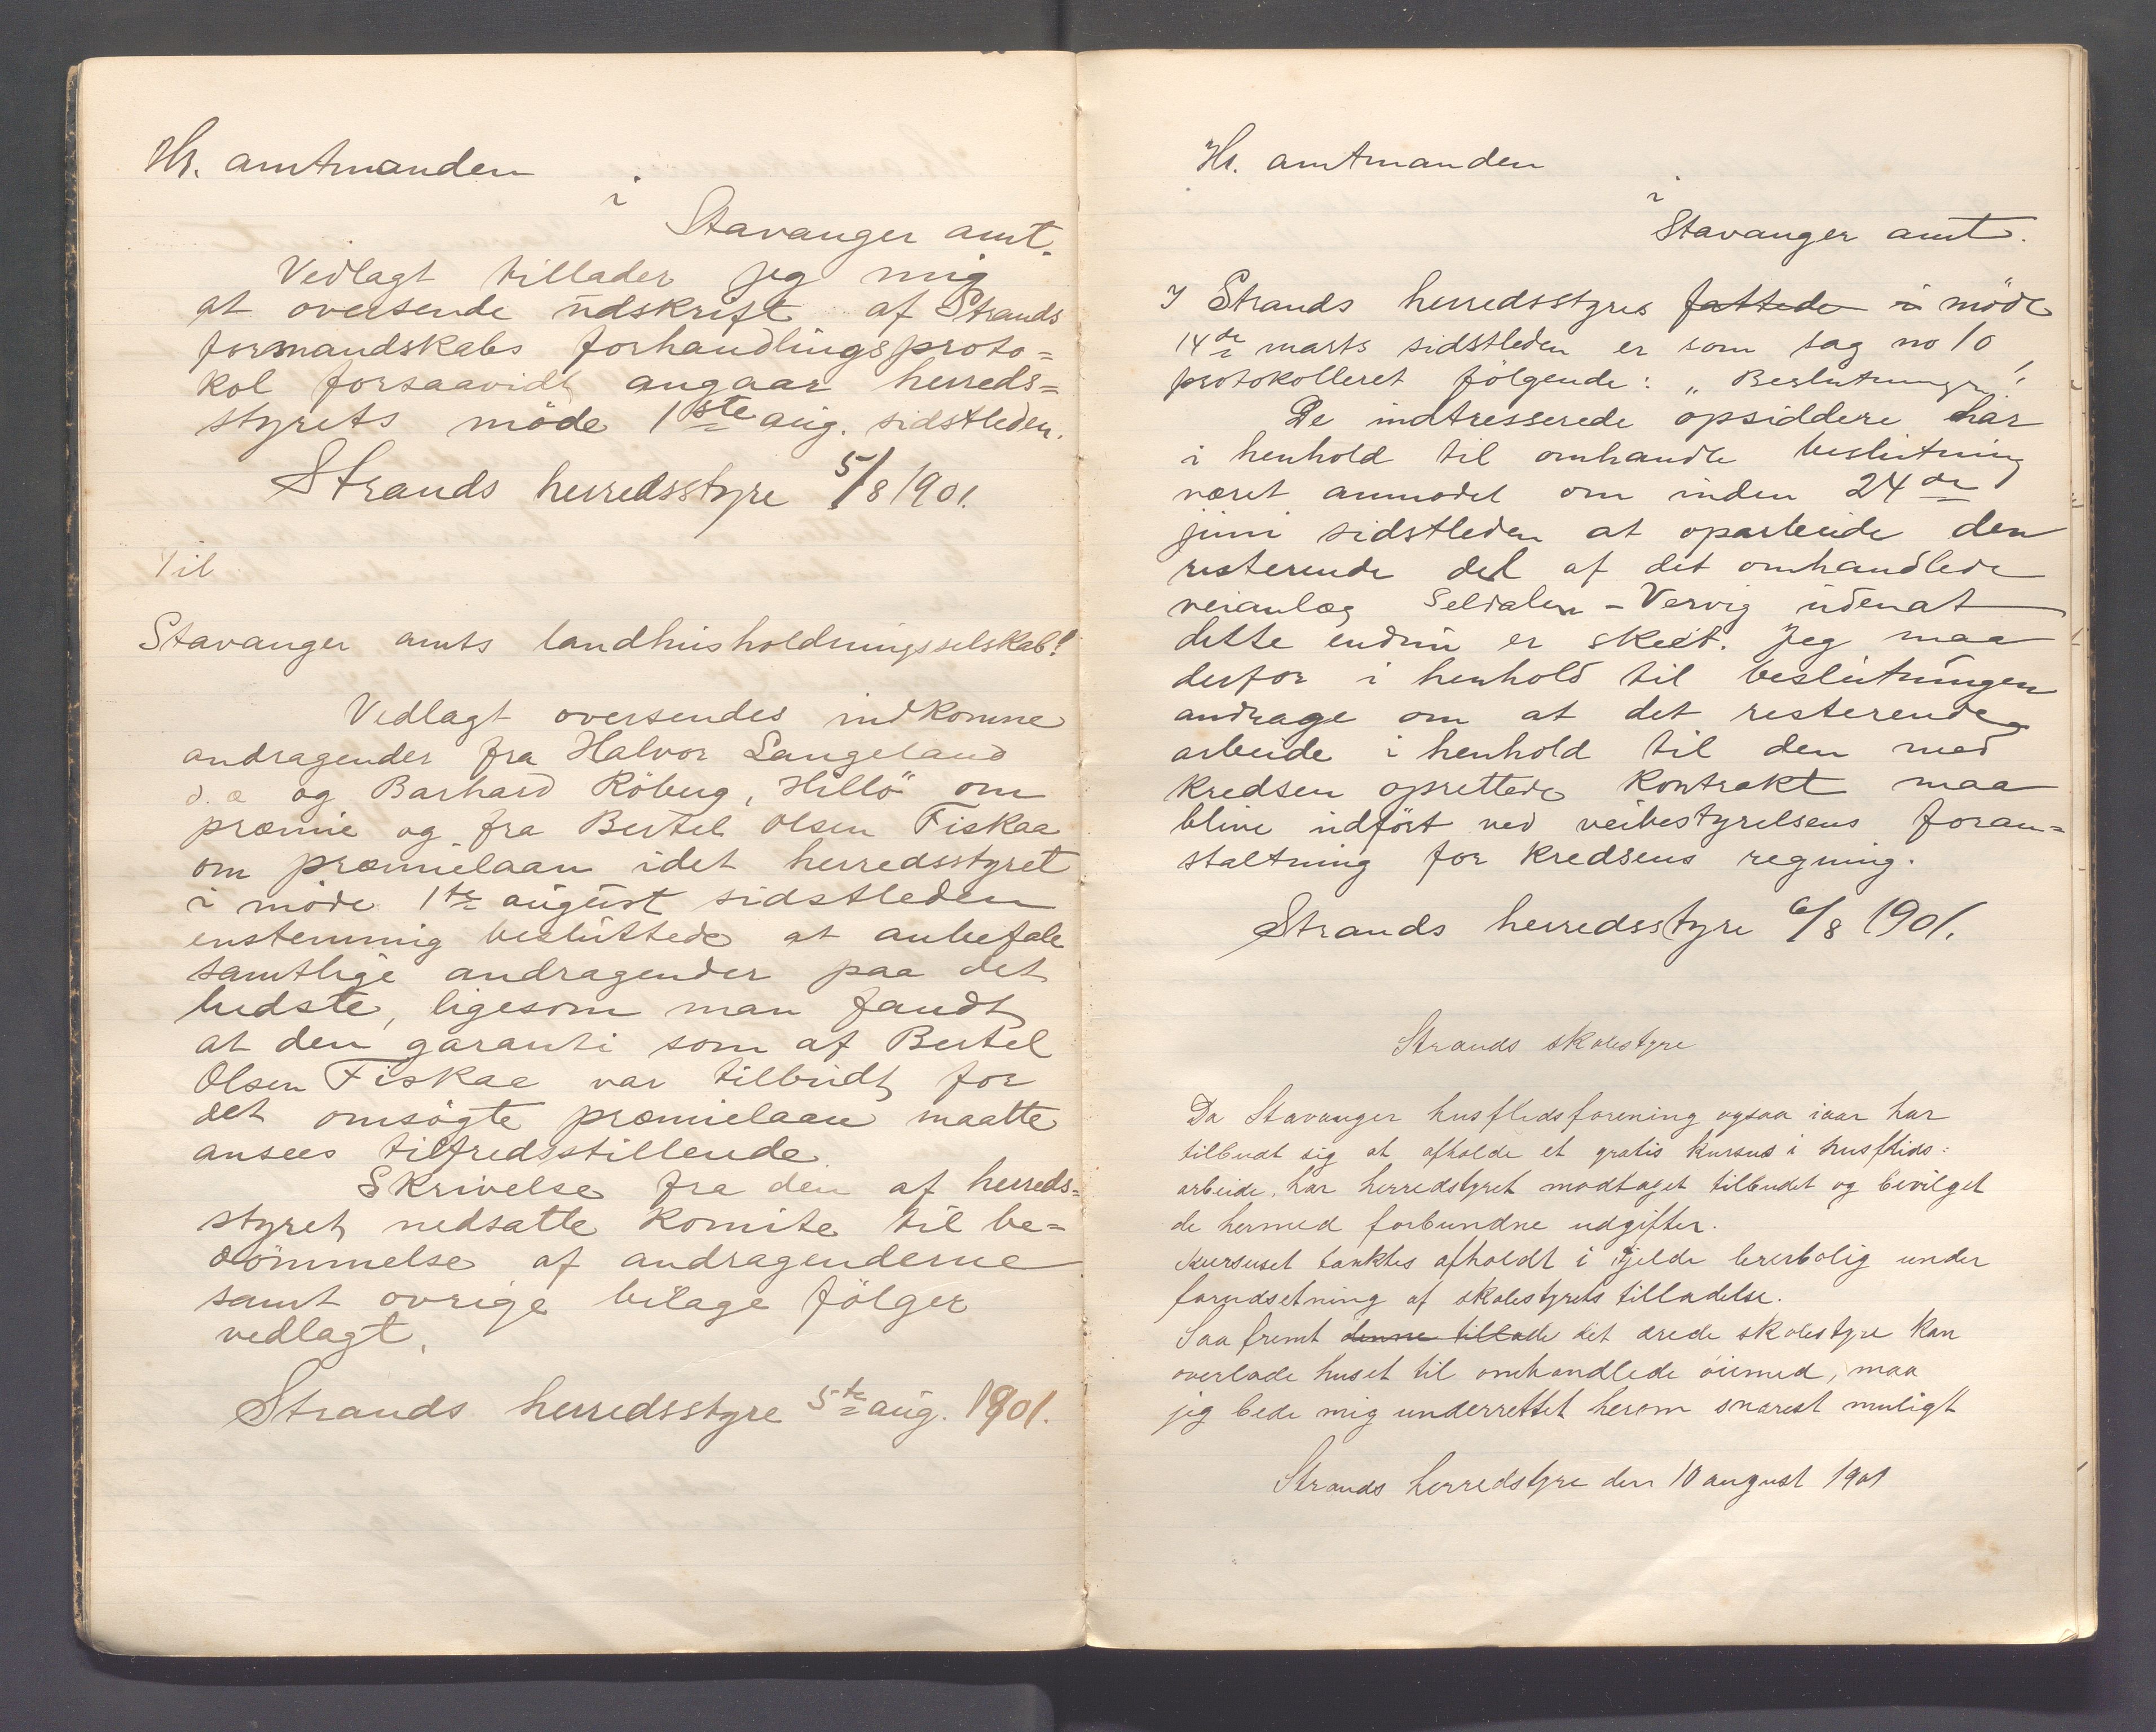 Hr. amtmanden
i
Stavanger amt.
Vedlagt tillader jeg mig
at oversende udskrift af Strands
formandskabs forhandlingsproto=
kol forsaavidt angaar herreds=
styrets möde 1ste aug. sidstleden.
Strands herredsstyre 5/8 1901.
Til
Stavanger amts landhusholdningsselskab!
Vedlagt oversendes indkomne
andragender fra Halvor Langeland
d. a og Barhard Röberg, Hillö om
præmie og fra Bertel Olsen Fiskaa
om præmielaan idet herredsstyret
i möde 1te august sidstleden
enstemmig besluttede at anbefale
samtlige andragender paa det
bedste, ligesom man fandt
at den garanti som af Bertel
Olsen Fiskaa var tilbudt for
det omsögte præmielaan maatte
ansees tilfredsstillende.
Skrivelse fra den af herreds=
styret nedsatte komite til be=
dömmelse af andragenderne
samt ovrige bilage fölger
vedlagt.
Strands herredsstyre 5te aug. 1901.
Hr. amtmanden
i
Stavanger amt.
I Strands herredsstyres fattede i möde
14de marts sidstleden er som sag no 10
protokolleret fölgende: "Beslutninger!
De indtresserede opsiddere har
i henhold til omhandle beslutning
været anmodet om inden 24de
juni sidstleden at oparbeide den
resterende del af det omhandlede
veianlæg Seldalen - Vervig udenat
dette endnu er skeet. Jeg maa
derfor i henhold til beslutningen
andrage om at det resterende
arbeide i henhold til den med
kredsen oprettede kontrakt maa
blive udfört ved veibestyrelsens foran=
staltning for kredsens regning.
Strands herredsstyre 6/8 1901.
Strands skolestyre
Da Stavanger husflidsforening ogsaa iaar har
tilbudt sig at afholde et gratis kursus i husflids=
arbeide, har herredstyret modtaget tilbudet og bevilget
de hermed forbundne udgifter.
Kursuset tænktes afholdt i Fjelde lererbolig under
forudsetning af skolestyrets tilladelse.
Saa fremt denne tillade det ærede skolestyre kan
overlade huset til omhandlede öiemed, maa
jeg bede mig underrettet herom snarest muligt
Strands herredstyre den 10 august 1901